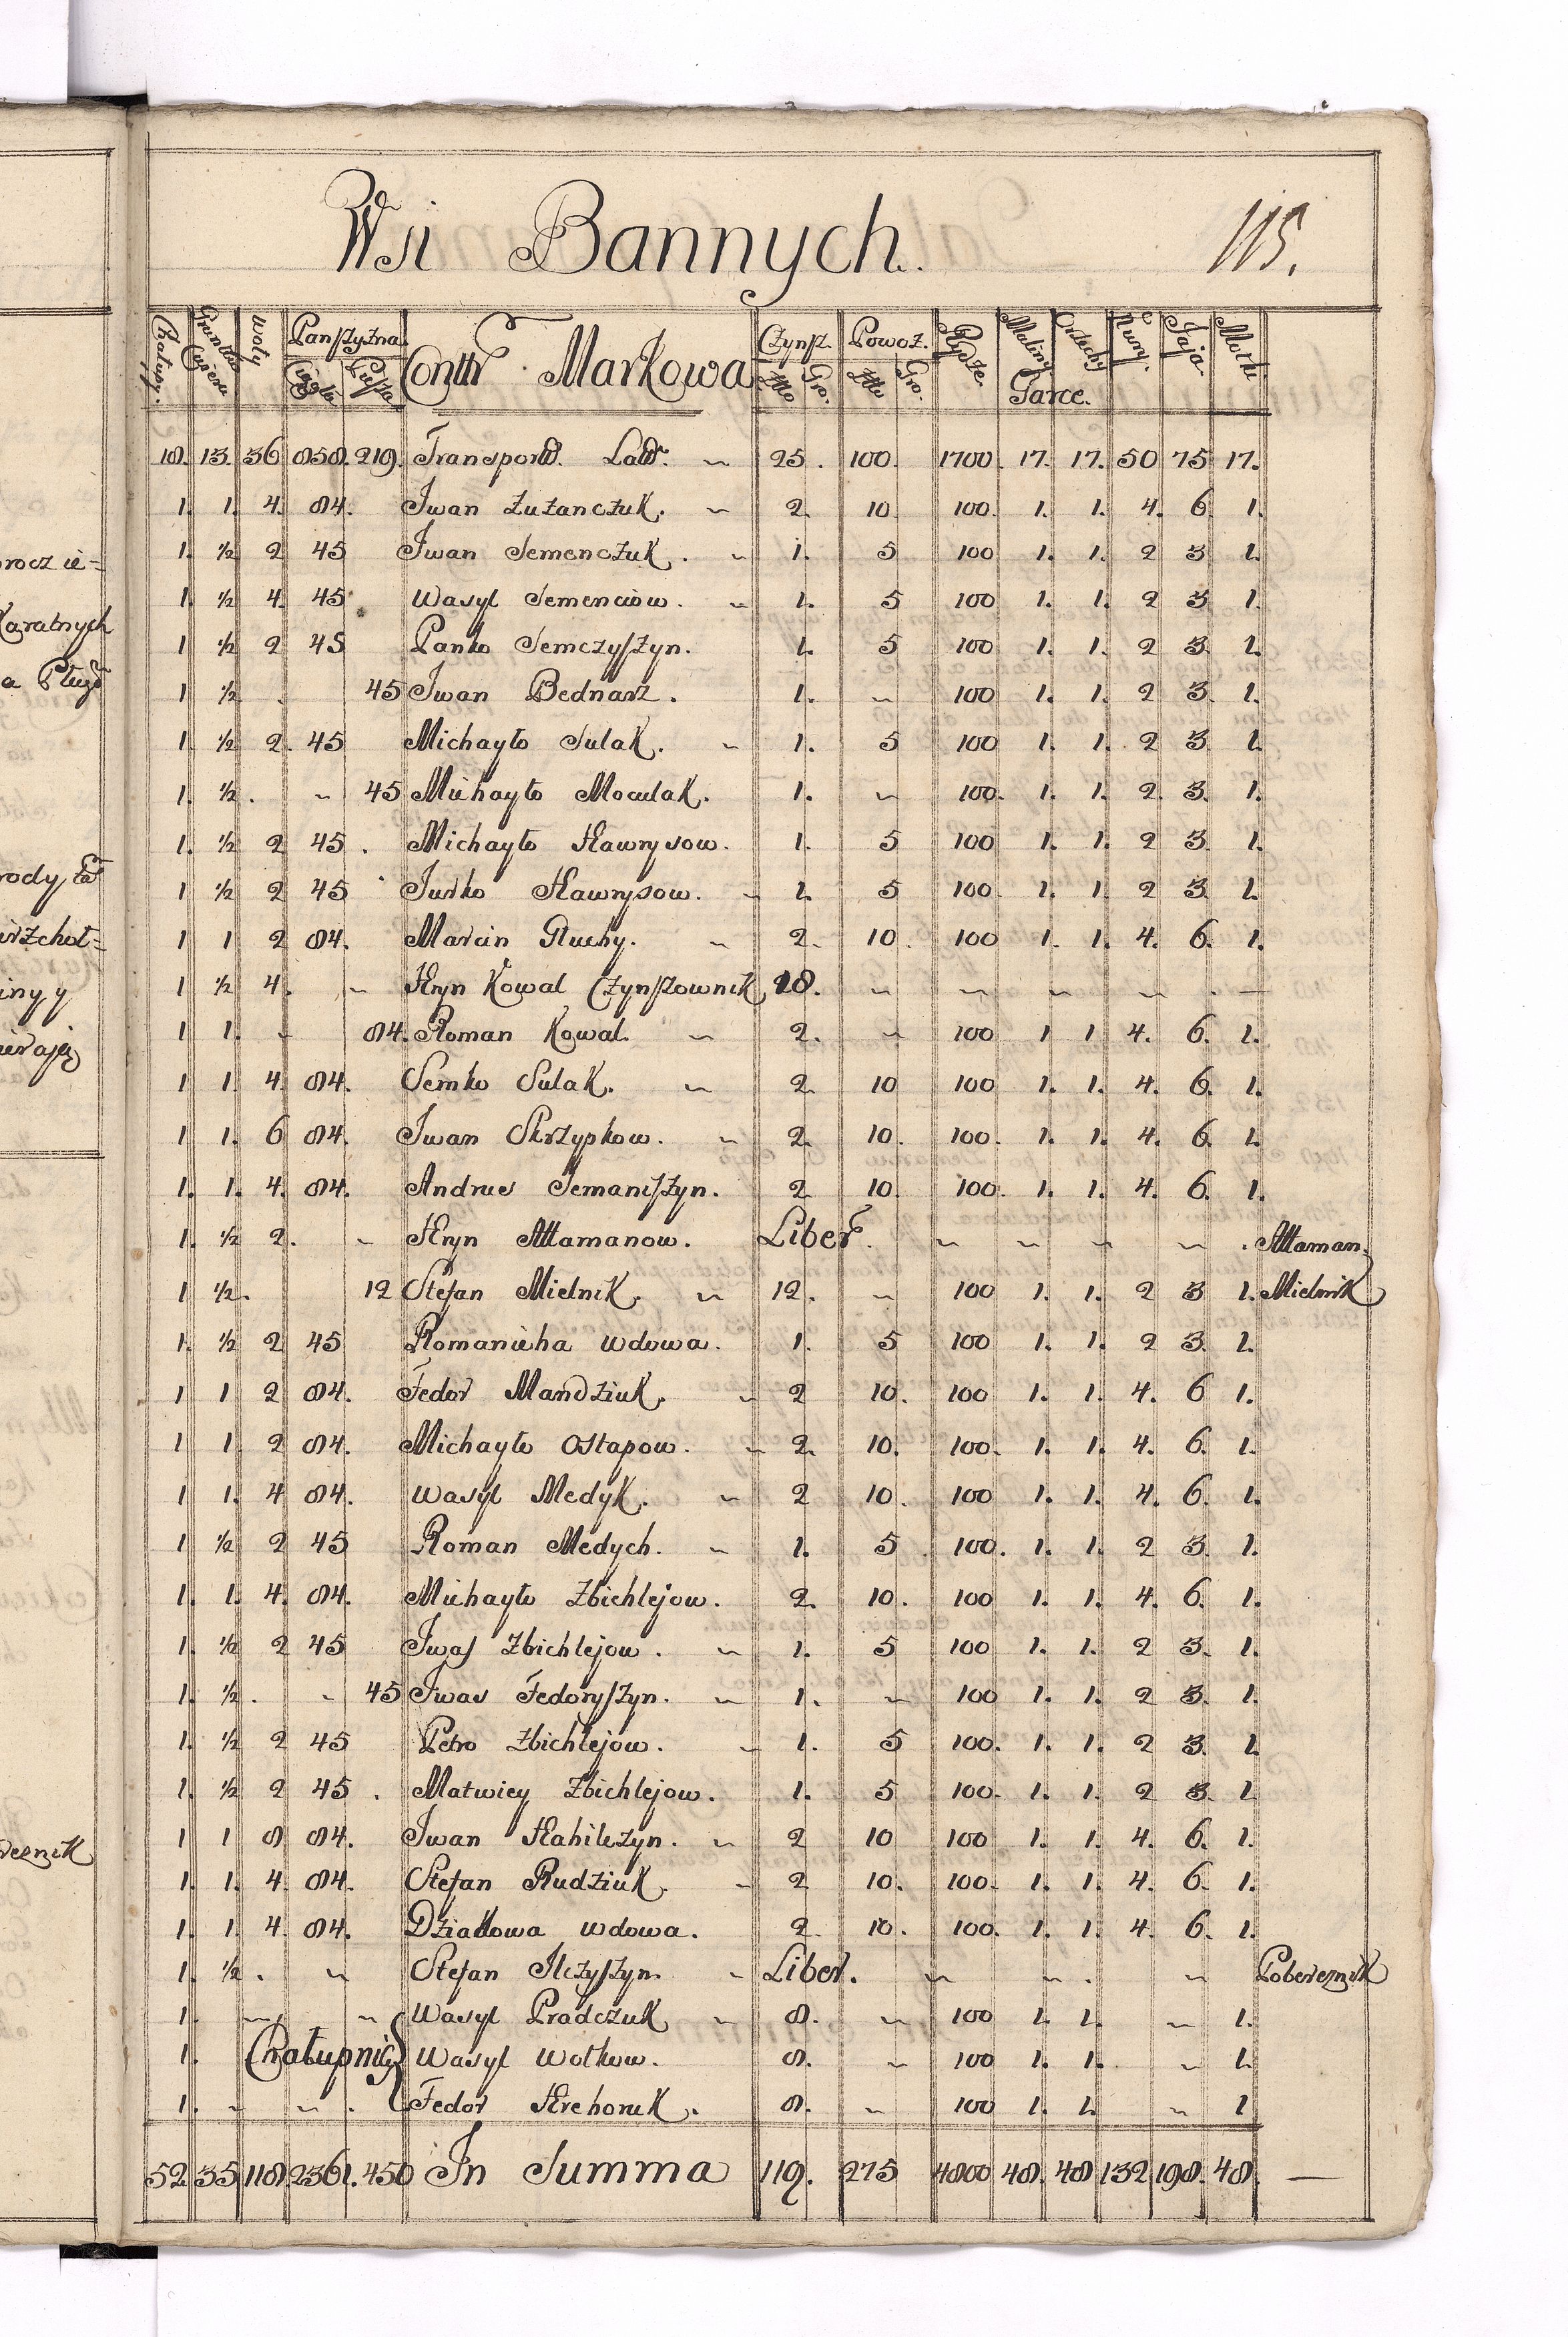 Wsi Bannych. 115.
Chałupy. Gruntu Cwierci Woły Panszyzna Ciągła Piesza Contr Markowa Czynsz. Zło Gro. Powoz. Zło Gro. Rydze. Maliny Orzechy Garce. Kury. Jaja. Motki
18. 13. 36 858. 219. Transport Lat. ~ 25. 100. 1700. 17. 17. 50 75 17.
1. 1. 4. 84. Iwan Zuzanczuk. ~ 2. 10. 100. 1. 1. 4. 6. 1.
1. ½ 2 45 Iwan Semenczuk. ~ 1. 5 100 1. 1. 2 3 1.
1. ½ 4. 45 Wasyl Semenciow. ~ 1. 5 100 1. 1. 2 3. 1.
1 ½ 2 45 Panko Semczyszyn. 1. 5 100 1. 1. 2 3. 1.
1 ½ . 45 Iwan Bednarz. 1. ~ 100 1. 1. 2 3. 1.
1 ½ 2. 45 Michayło Sulak. ~ 1. 5 100 1. 1. 2 3. 1.
1. ½. ~ 45 Michayło Moculak. 1. ~ 100. 1. 1. 2. 3. 1.
1. ½ 2 45. Michayło Hawrysow. 1. 5 100 1. 1. 2 3. 1.
1 ½ 2 45 Jurko Hawrysow. ~ 1. 5 100. 1. 1. 2 3. 1.
1 1 2 84. Marcin Głuchy. ~ 2. 10. 100 1. 1. 4. 6. 1.
1 ½ 4. ~ Hryn Kowal Czynszownik 18. ~ ~ ~ ~ . —
1 1. ~ 84. Roman Kowal. ~ 2. ~ 100 1 1 4. 6. 1.
1 1. 4. 84. Semko Sulak. ~ 2 10 100 1. 1. 4. 6. 1.
1 1. 6 84. Iwan Skrzypkow. ~ 2. 10. 100. 1. 1. 4. 6. 1.
1. 1. 4. 84. Andruś Semaniszyn. 2 10. 100. 1. 1. 4. 6. 1.
1. ½ 2. ~ Hryn Attamanow. Liber. ~ ~ ~ ~ . Attaman.
1 ½. 12 Stefan Mielnik. ~ 12. ~ 100 1. 1. 2 3 1. Mielnik
1. ½ 2 45 Romanicha wdowa. 1. 5 100 1. 1. 2 3. 1.
1 1 2 84. Fedor Mandziuk. ~ 2 10. 100 1. 1. 4. 6 1.
1 1. 2 84. Michayło Ostapow. ~ 2. 10. 100. 1. 1. 4. 6. 1.
1 1. 4 84. Wasyl Medyk. ~ 2 10. 100 1. 1. 4. 6. 1.
1 ½ 2 45 Roman Medych. ~ 1. 5. 100. 1. 1. 2 3. 1.
1. 1. 4. 84. Michayło Zbichlejow. 2. 10. 100 1. 1. 4. 6. 1.
1. ½ 2 45 Iwaś Zbichlejow. ~ 1. 5 100 1. 1. 2 3. 1.
1. ½. ~ 45 Iwas Fedoryszyn. ~ 1. ~ 100 1. 1. 2 3. 1.
1. ½ 2 45 Petro Zbichlejow. ~ 1. 5 100. 1. 1. 2 3. 1.
1. ½ 2 45. Matwiey Zbichlejow. 1. 5 100. 1. 1. 2 3. 1.
1 1 8 84. Iwan Hahilczyn. ~ 2 10 100 1. 1. 4. 6. 1.
1. 1. 4. 84. Stefan Rudziuk. ~ 2 10. 100. 1. 1. 4. 6. 1.
1 1 4 84. Dziakowa wdowa. 2 10. 100. 1. 1. 4. 6. 1.
1. ½. ~ Stefan Ilczyszyn. ~ Liber. ~ ~. ~ Pobereznik
1. ~ ~ Wasyl Pradczuk ~ 8. ~ 100 1. 1. ~ 1.
1. Chałupnicy Wasyl Wołkow. 8. ~ 100 1. 1. ~ 1.
1. ~ ~. Fedor Hrehoruk. 8. ~ 100 1. 1. ~ 1
52 35 118. 2361. 450 In Summa 119. 275 4800 48. 48 132 198. 48. —
rocz ie=
Karatnych
a Pługo
iny y